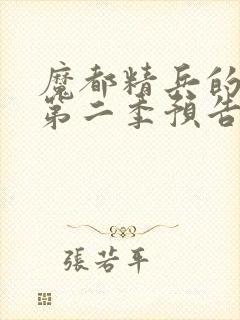 魔都精兵的
第二季預告
張若平